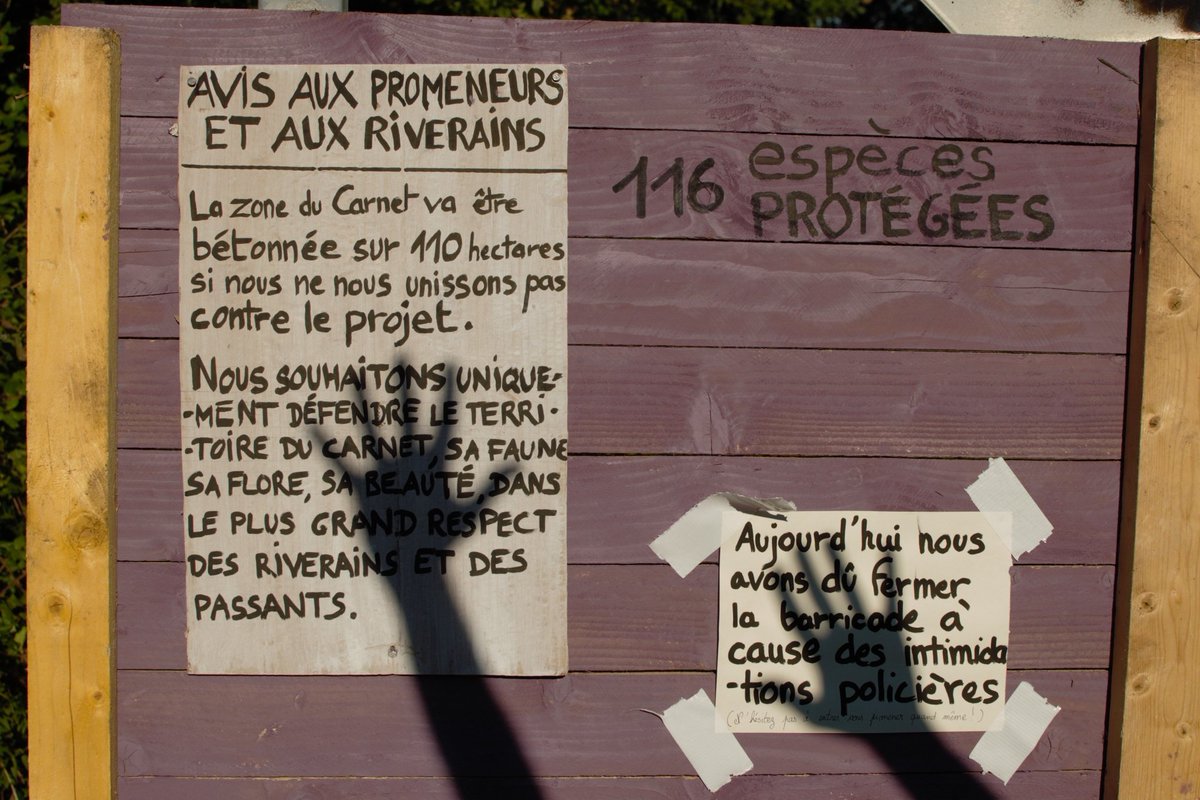 AVIS AUX PROMENEURS
ET AUX RIVERAINS
La zone du Carnet va être
bétonnée sur 110 hectares
si nous ne nous unissons pas
contre le projet.
NOUS SOUHAITONS UNIQUE-
-MENT DÉFENDRE LE TERRI-
-TOIRE DU CARNET, SA FAUNE
SA FLORE, SA BEAUTÉ, DANS
LE PLUS GRAND RESPECT
DES RIVERAINS ET DES
PASSANTS.
116 espèces
PROTÉGÉES
Aujourd'hui nous
avons dû fermer
la barricade à
cause des intimida
-tions policières
(N'hésitez pas à entrer vous promener quand même !)